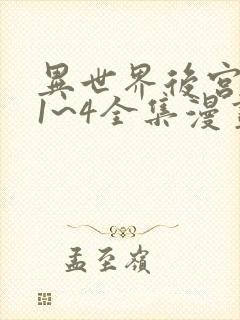 異世界後宮
1~4全集漫
孟至嶺